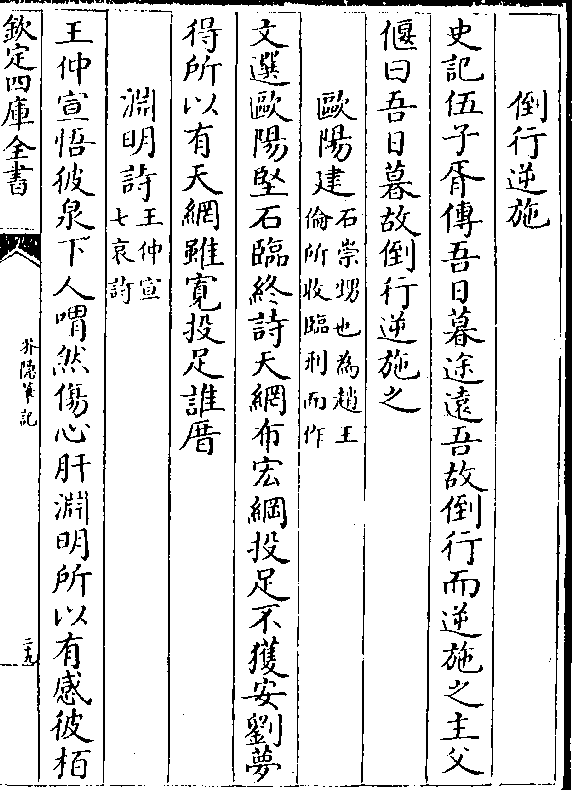 倒行逆施
史記伍子胥傳吾日暮途遠吾故倒行而逆施之主父
偃曰吾日暮故倒行逆施之
歐陽建石崇甥也為趙王
倫所收臨刑而作
文選歐陽堅石臨終詩天網布宏綱投足不獲安劉夢
得所以有天網雖寛投足誰厝
淵明詩王仲宣
七哀詩
王仲宣悟彼泉下人喟然傷心肝淵明所以有感彼栢
欽定四庫全書
芥隱筆記
二十九